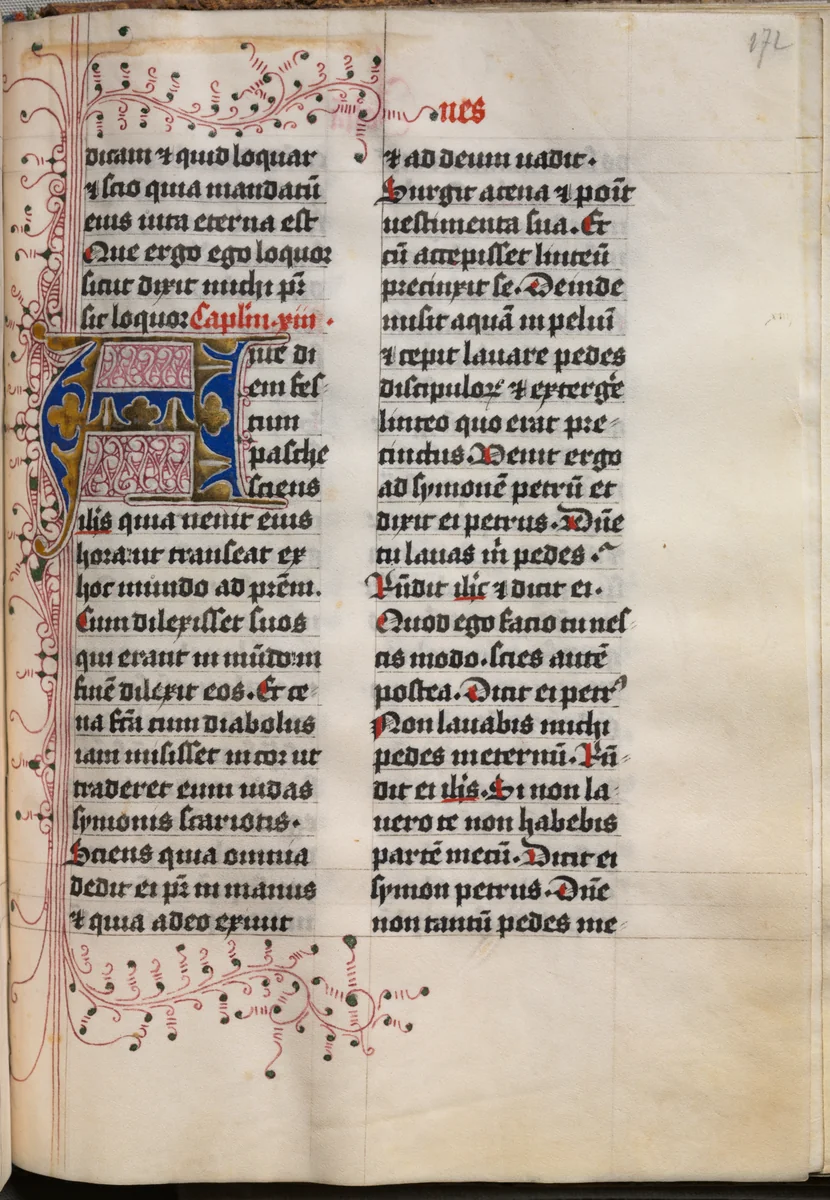 172
nes
dicam ⁊ quid loquar
⁊ scio quia mandatū
eius uita eterna est
Que ergo ego loquor
sicut dixit michi pr̄
sic loquor Caplm̄. xiii.
Ante di
em fes-
tum
pasche
sciens
ih̄s quia uenit eius
hora ut transeat ex
hoc mundo ad prēm.
Cum dilexisset suos
qui erant in mūdo in
finē dilexit eos. Et ce-
na fc̄a cum diabolus
iam misisset in cor ut
traderet eum iudas
symonis scariotis.
Sciens quia omnia
dedit ei pr̄ in manus
⁊ quia a deo exiuit
⁊ ad deum uadit.
Surgit a cena ⁊ poīt
uestimenta sua. Et
cū accepisset linteū
precinxit se. Deinde
misit aquā in peluī
⁊ cepit lauare pedes
discipuloꝝ ⁊ exterge͛
linteo quo erat pre-
cinctus. Venit ergo
ad symonē petrū et
dixit ei petrus. Dn̄e
tu lauas m̄ pedes.
Rn̄dit ih̄c ⁊ dicit ei.
Quod ego facio tu nes-
cis modo. scies autē
postea. Dicit ei petrꝰ
Non lauabis michi
pedes in eternū. Rn̄-
dit ei ih̄s. Si non la-
uero te non habebis
partē mecū. Dicit ei
symon petrus. Dn̄e
non tantū pedes me-